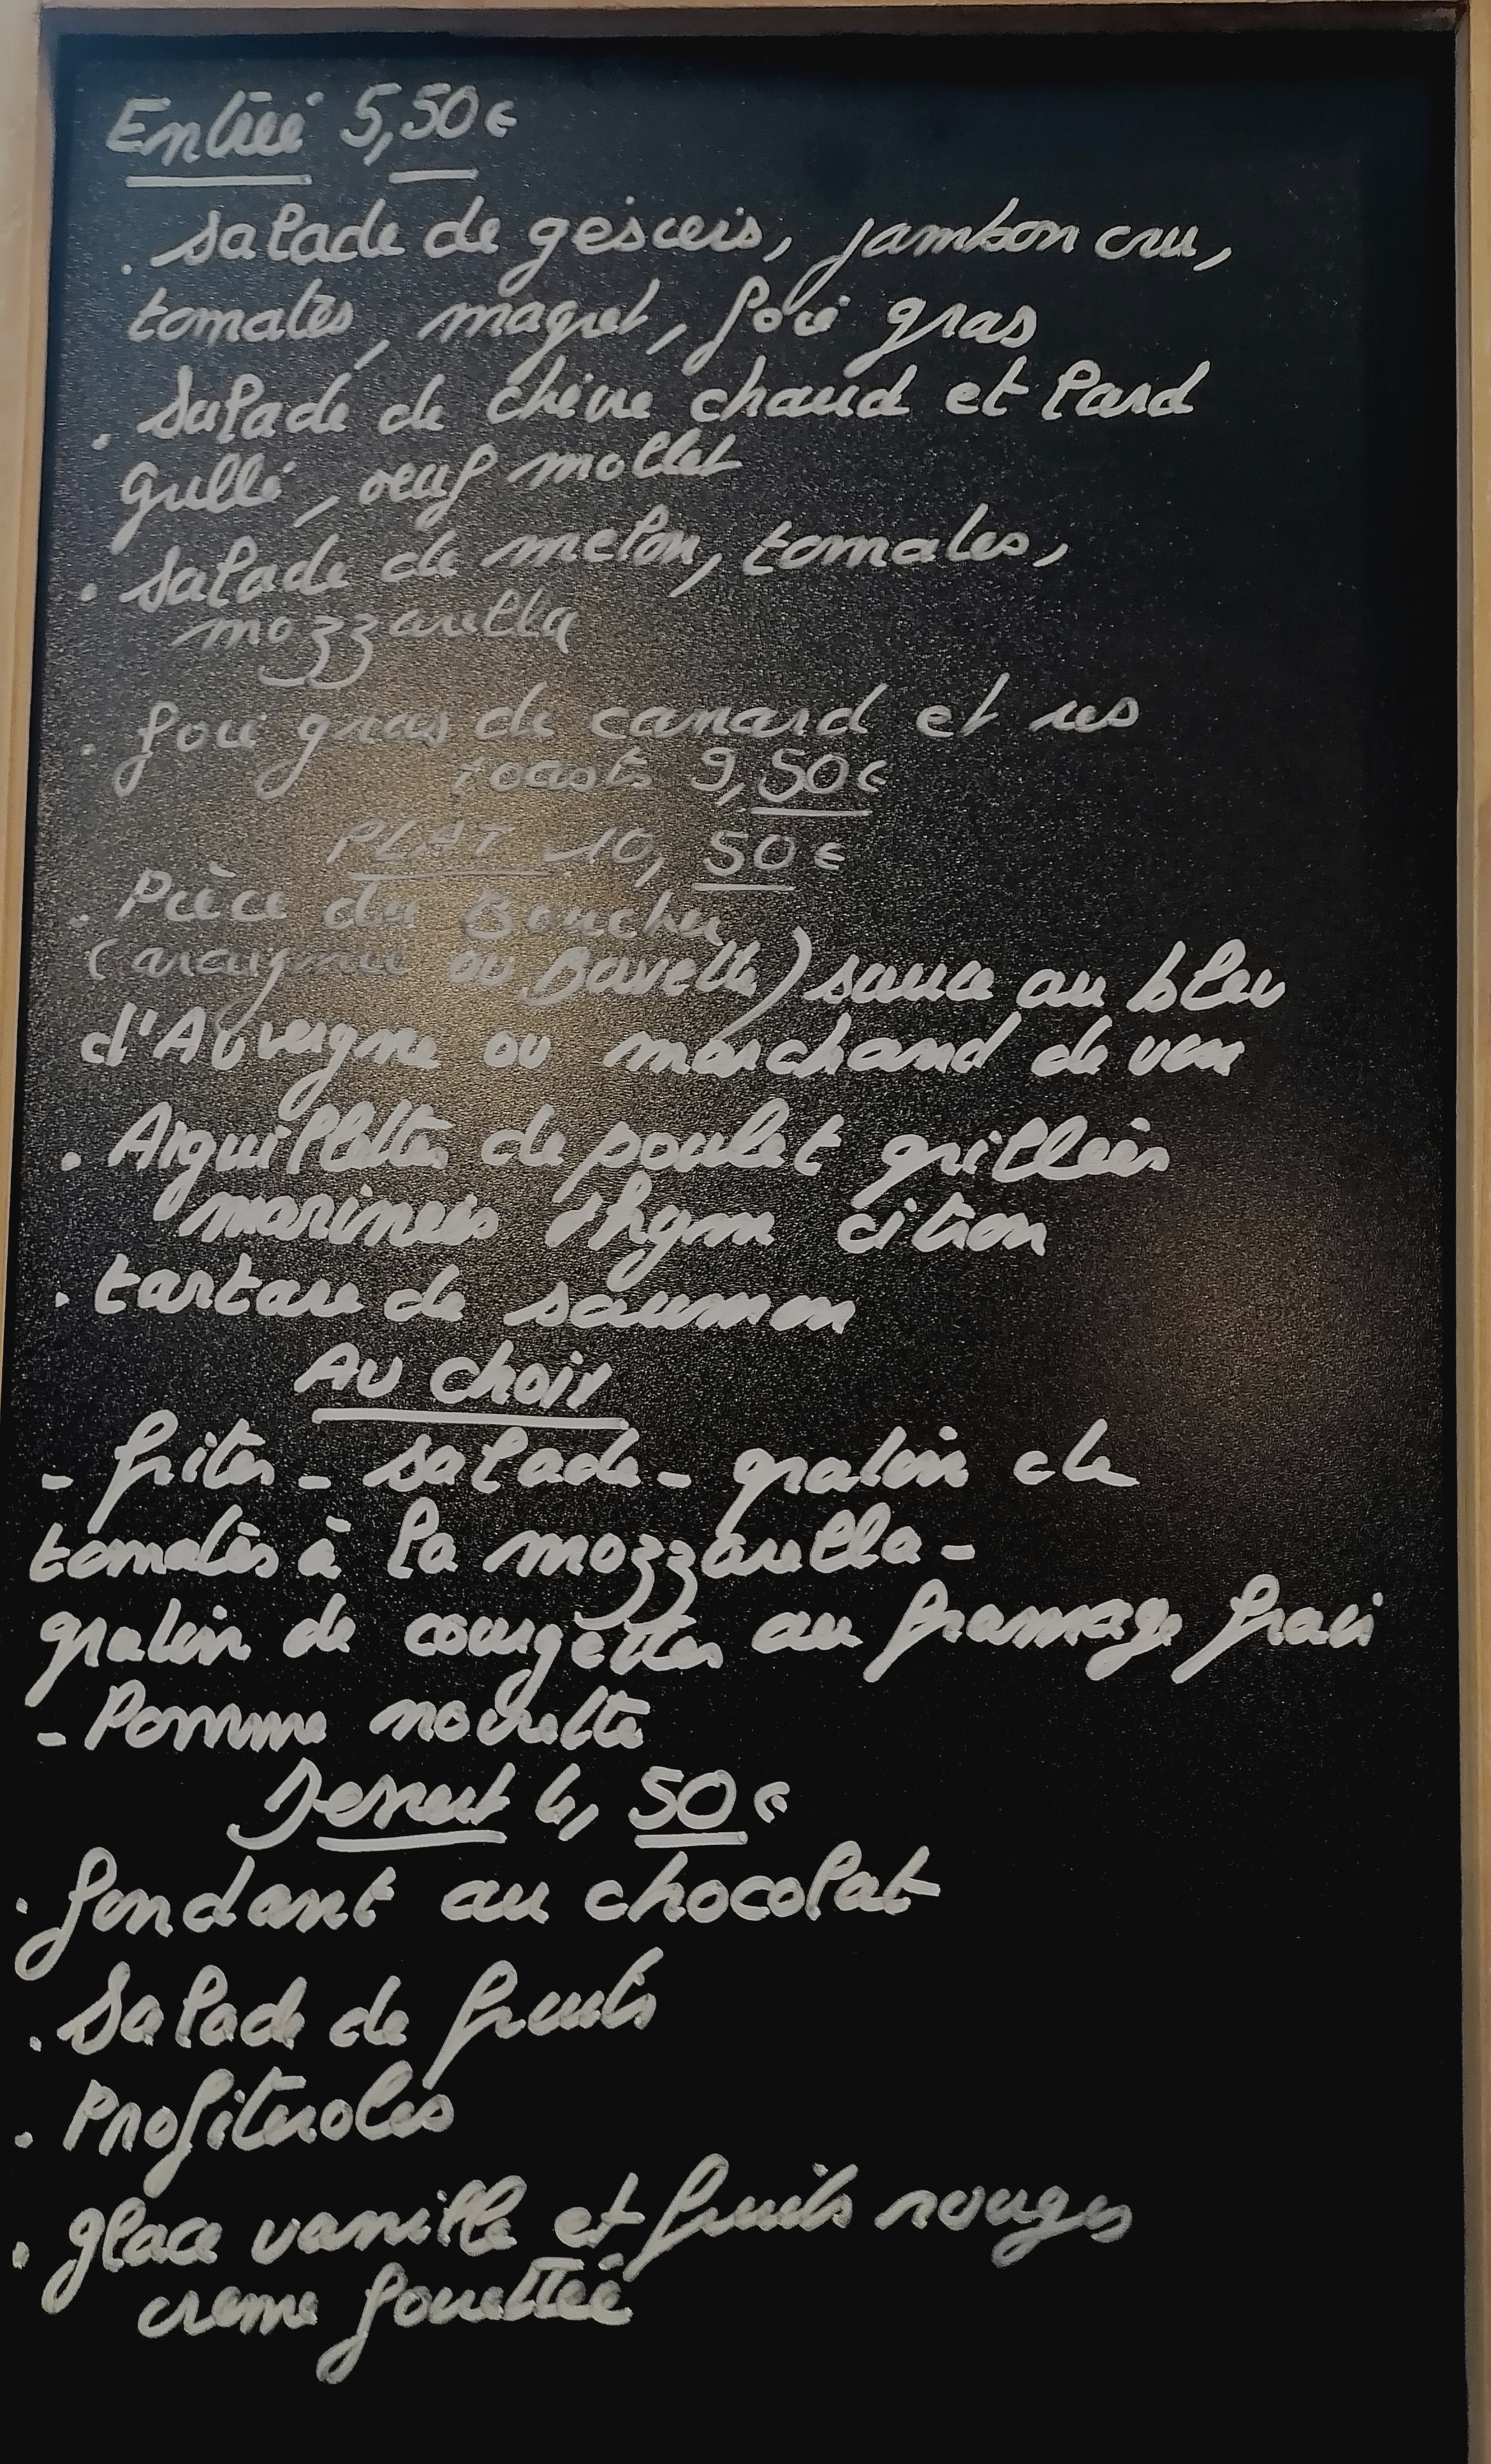 Entrée 5,50€
. Salade de gésiers, jambon cru,
tomates, magret, foie gras
. Salade de chèvre chaud et lard
grillé, oeuf mollet
. Salade de melon, tomates,
mozzarella
. foie gras de canard et ses
toasts 9,50€
PLAT 10,50€
. Pièce du Boucher
(araignée ou Bavette) sauce au bleu
d'Auvergne ou marchand de vin
. Aiguillettes de poulet grillées
marinées thym citron
. tartare de saumon
Au choix
- frites - salade - gratin de
tomates à la mozzarella -
gratin de courgettes au fromage frais
- Pomme noisette
Dessert 4,50€
. fondant au chocolat
. Salade de fruits
. Profiteroles
. glace vanille et fruits rouges
creme fouettée